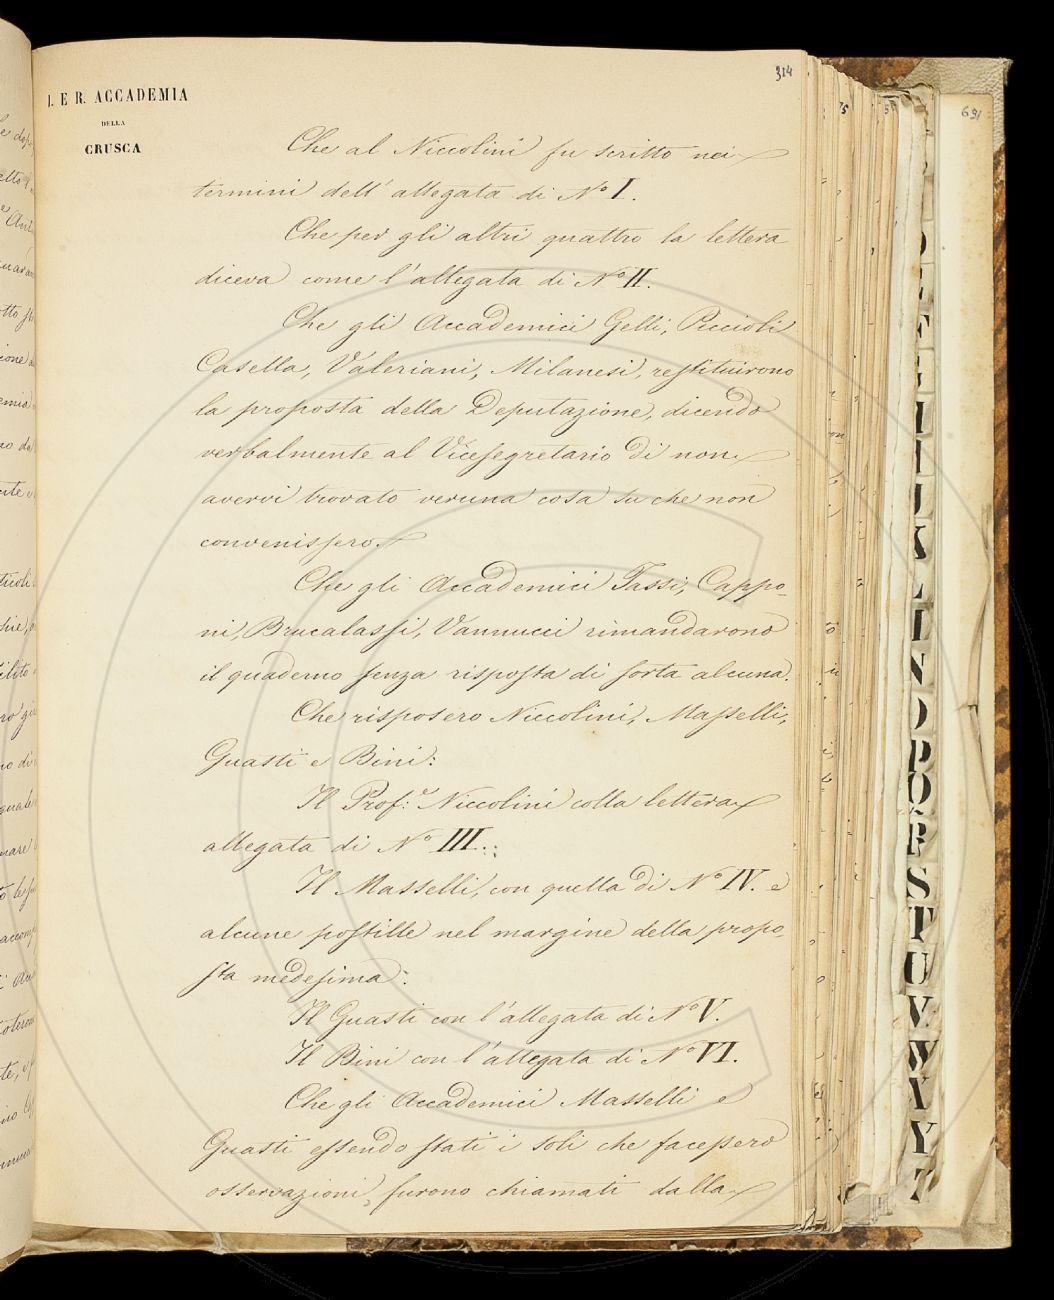 314
I. E R. ACCADEMIA
DELLA
CRUSCA
Che al Niccolini fu scritto nei
termini dell'allegata di Nº I.
Che per gli altri quattro la lettera
diceva come l'allegata di Nº II.
Che gli Accademici Gelli, Piccioli
Casella, Valeriani, Milanesi, restituirono
la proposta della Deputazione, dicendo
verbalmente al Vicesegretario di non
avervi trovato veruna cosa su che non
convenissero.
Che gli Accademici Tassi, Cappo-
ni, Brucalassi, Vannucci rimandarono
il quaderno senza risposta di sorta alcuna.
Che risposero Niccolini, Masselli,
Guasti e Bini:
Il Prof.e Niccolini colla lettera
allegata di Nº III.:
Il Masselli, con quella di Nº IV. e
alcune postille nel margine della propo-
sta medesima:
Il Guasti con l'allegata di Nº V.
Il Bini con l'allegata di Nº VI.
Che gli Accademici Masselli e
Guasti essendo stati i soli che facessero
osservazioni, furono chiamati dalla
631